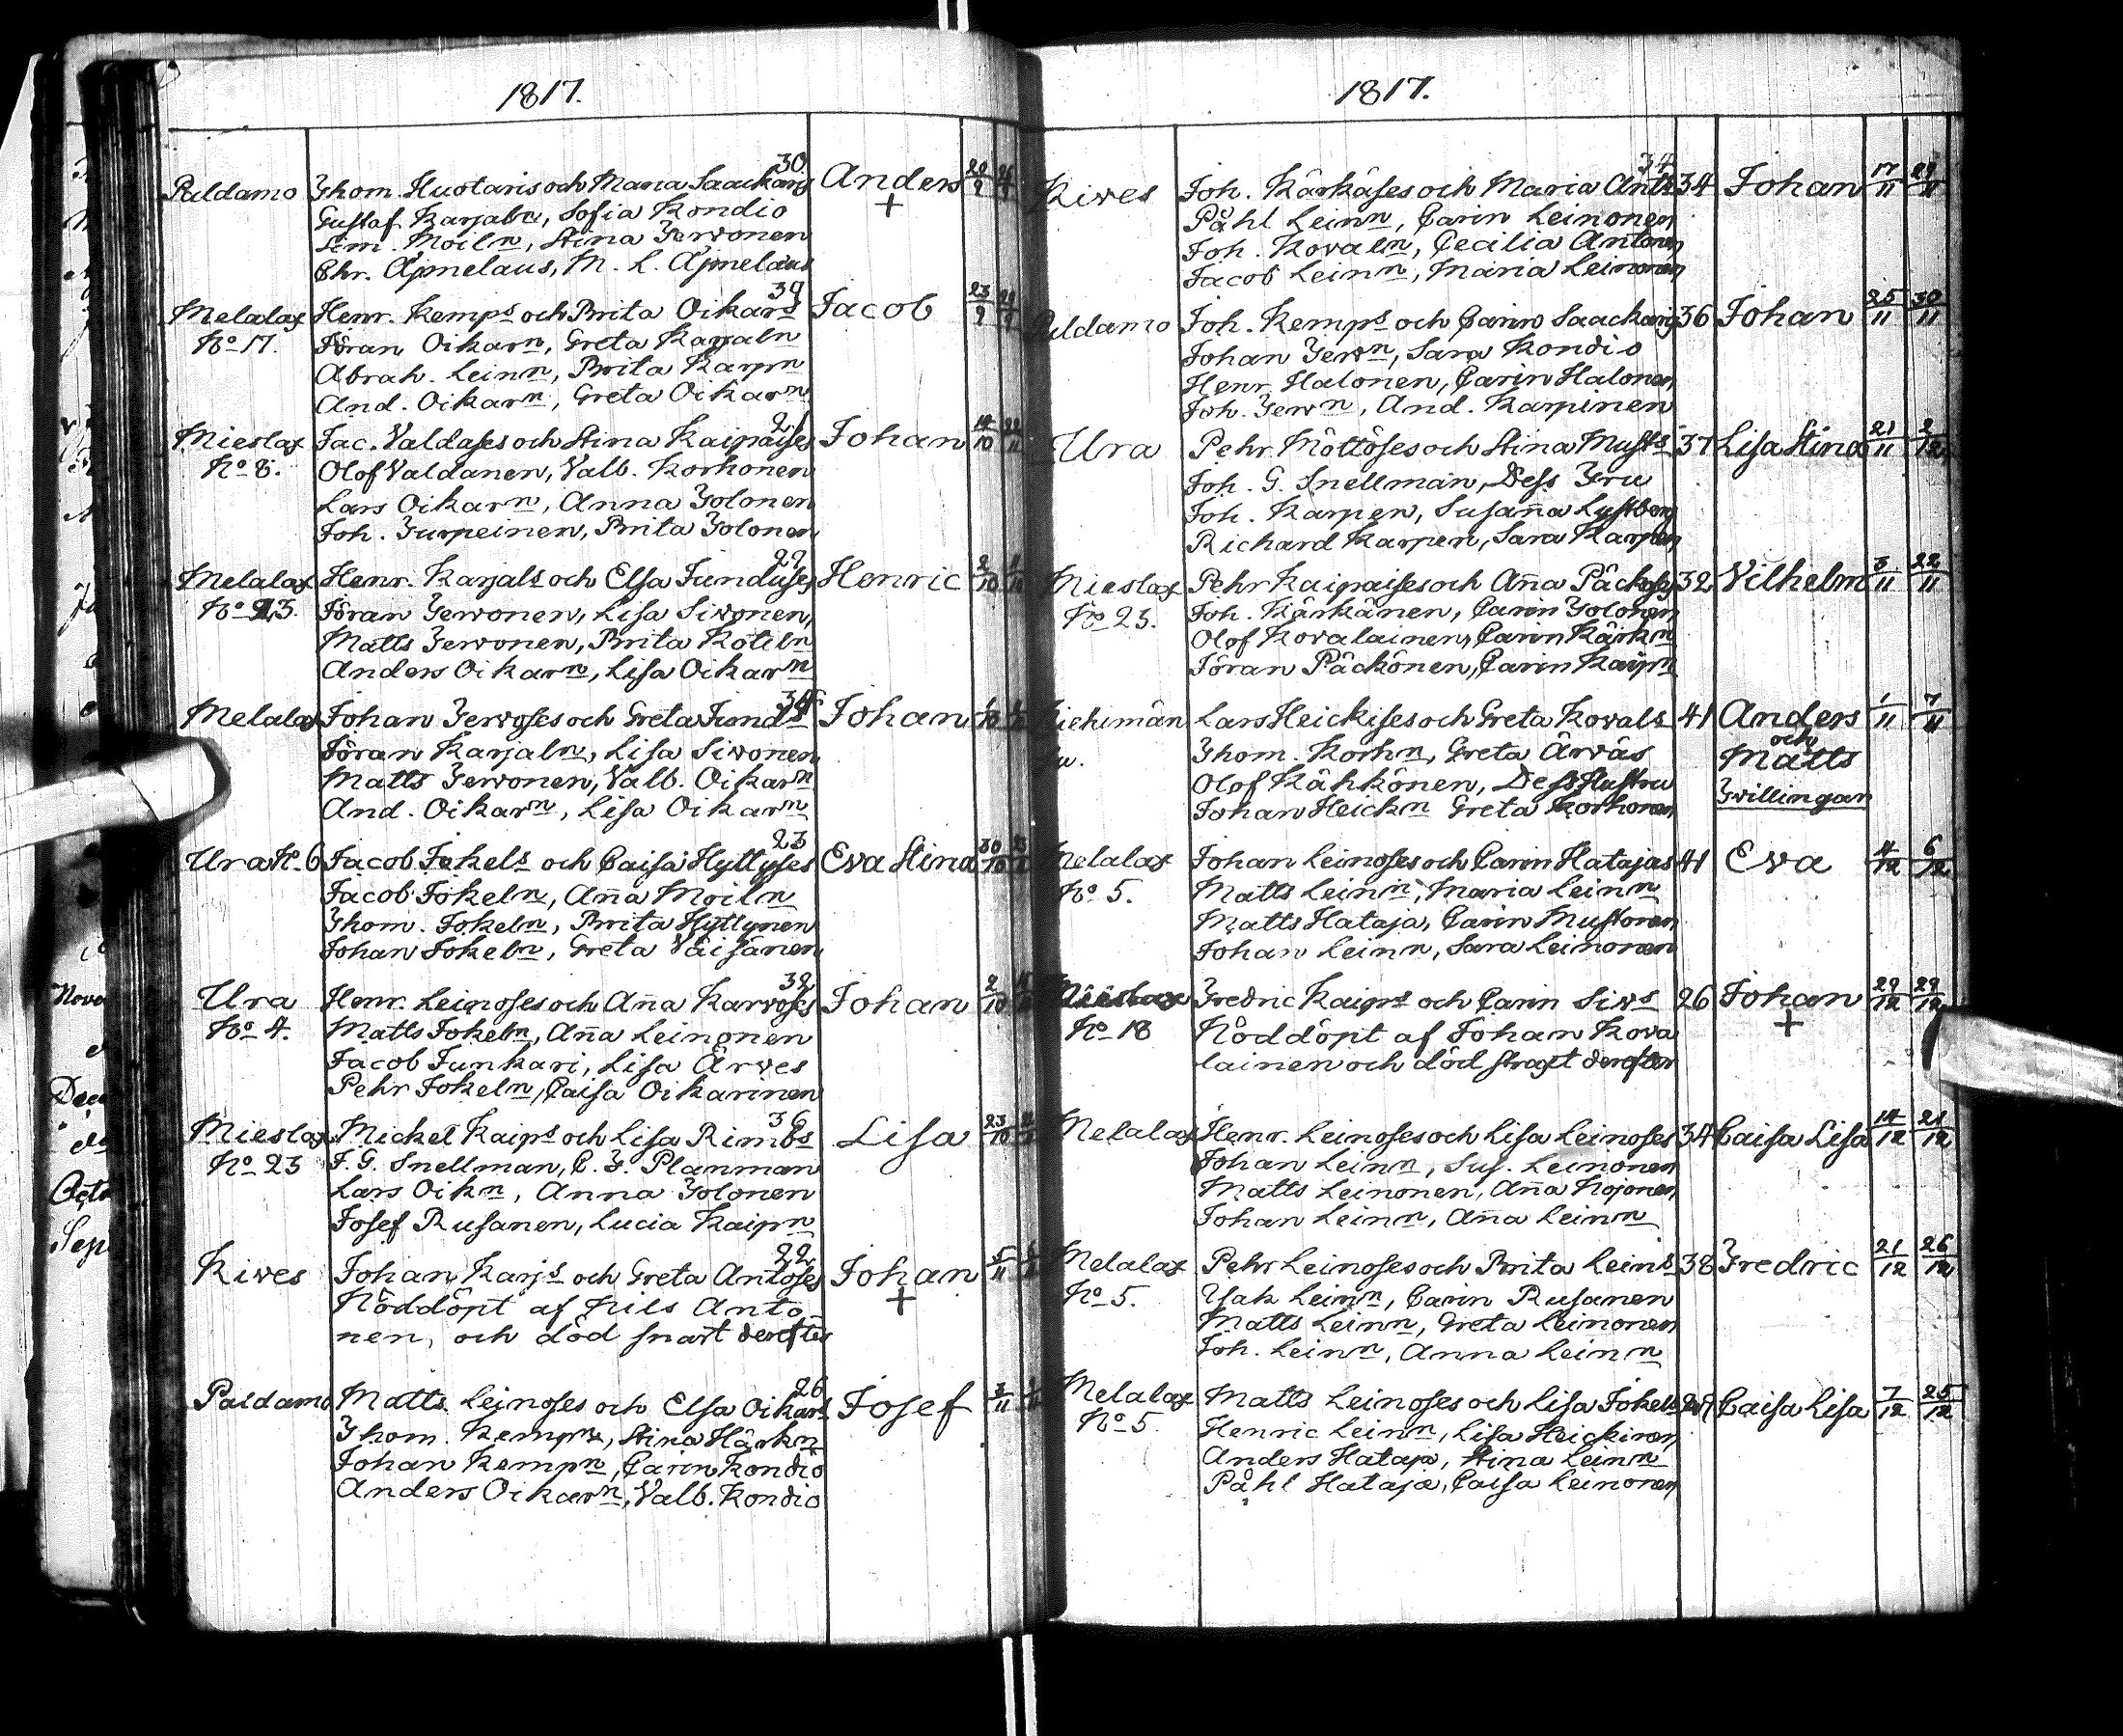 1817.
30.
Paldamo Thom. Huotaris och Maria Saackans Anders 20/9
+
Gustaf Karjaln, Sofia Kondio
Sim. Moiln, Stina Tervonen
Chr. Ajmelaus, M. L. Ajmelaus
39
Melalax Henr. Kemps och Brita Oikars Jacob 23/9
No 17. Jöran Oikarn, Greta Karjaln
Abrah. Leinn, Brita Karpn
And. Oikarn, Greta Oikarn
21
Mieslax Jac. Valdases och Stina Kaipaises Johan 14/10
No 8. Olof Valdanen, Valb. Korhonen
Lars Oikarn, Anna Tolonen
Joh. Turpeinen, Brita Tolonen
29
Melalax Henr. Karjals och Elsa Junduses Henric 2/10
No 23. Jöran Tervonen, Lisa Sivonen,
Matts Tervonen, Brita Koteln
Anders Oikarn, Lisa Oikarn
34
Melalax Johan Tervoses och Greta Junds Johan
Jöran Karjaln, Lisa Sivonen
Matts Tervonen, Valb. Oikarn
And. Oikarn, Lisa Oikarn
23
Ura N. 6 Jacob Jokels och Caisa Hyttyses Eva Stina 30/10
Jacob Jokeln, Anna Moiln
Thom. Jokeln, Brita Hyttynen
Johan Jokeln, Greta Väisänen
32
Ura Henr. Leinoses och Anna Karvoses Johan 2/10
No 4. Matts Jokeln, Anna Leinonen
Jacob Junkari, Lisa Ärves
Pehr Jokeln, Caisa Oikarinen
36
Mieslax Mickel Kaips och Lisa Rimbs Lisa 23/10
No 23 J. G. Snellman, C. T. Planman
Lars Oikn, Anna Tolonen
Josef Rusanen, Lucia Kaipn
22
Kives Johan Karjs och Greta Antoses Johan 5/11
+
Nöddöpt af Nils Anto
nen, och död snart derefter
26
Paldamo Matts Leinoses och Elsa Oikars Josef 3/11
Thom. Kempn, Stina Härkn
Johan Kempn, Carin Kondio
Anders Oikarn, Valb. Kondio
1817.
34
Kives Joh. Kärkäses och Maria Ants 34 Johan 17/11 29/11
Påhl Leinn, Carin Leinonen
Joh. Kovaln, Cecilia Antonen
Jacob Leinn, Maria Leinonen
Paldamo Joh. Kemps och Carin Saackans 36 Johan 25/11 30/11
Johan Tervn, Sara Kondio
Henr. Halonen, Carin Halonen
Joh. Tervn, And. Karpinen
Ura Pehr Möttöses och Stina Musts 37 Lisa Stina 21/11 2/12
Joh. G. Snellman, Dess Fru
Joh. Karpen, Susanna Lustberg
Richard Karpen, Sara Karpen
Mieslax Pehr Kaipaises och Anna Päcköses 32 Vilhelm 3/11 22/11
No 23. Joh. Kärkänen, Carin Tolonen
Olof Kovalainen, Carin Kärkn
Jöran Päckönen, Carin Kaipn
Lars Heickises och Greta Kovals 41 Anders 1/11 7/11
och
Thom. Korhn, Greta Ärväs Matts
Olof Kähkönen, Dess Hustru Tvillingar
Johan Heickn Greta Korhonen
Melalax Johan Leinoses och Carin Hatajas 41 Eva 4/12 6/12
No 5. Matts Leinn, Maria Leinn
Matts Hataja, Carin Mustonen
Johan Leinn, Sara Leinonen
Mieslax Fredric Kaips och Carin Sivs 26 Johan 29/12 29/12
+
No 18 Nöddöpt af Johan Kova
lainen och död straxt derefter
Melalax Henr. Leinoses och Lisa Leinoses 34 Caisa Lisa 14/12 21/12
Johan Leinn, Sus. Leinonen
Matts Leinonen, Anna Mojonen
Johan Leinn, Anna Leinn
Melalax Pehr Leinoses och Brita Leins 38 Fredric 21/12 26/12
No 5. Isak Leinn, Carin Rusanen
Matts Leinn, Greta Leinonen
Joh. Leinn, Anna Leinn
Melalax Matts Leinoses och Lisa Jokels 27 Caisa Lisa 7/12 25/12
No 5. Henric Leinn, Lisa Heickinen
Anders Hataja, Stina Leinn
Påhl Hataja, Caisa Leinonen